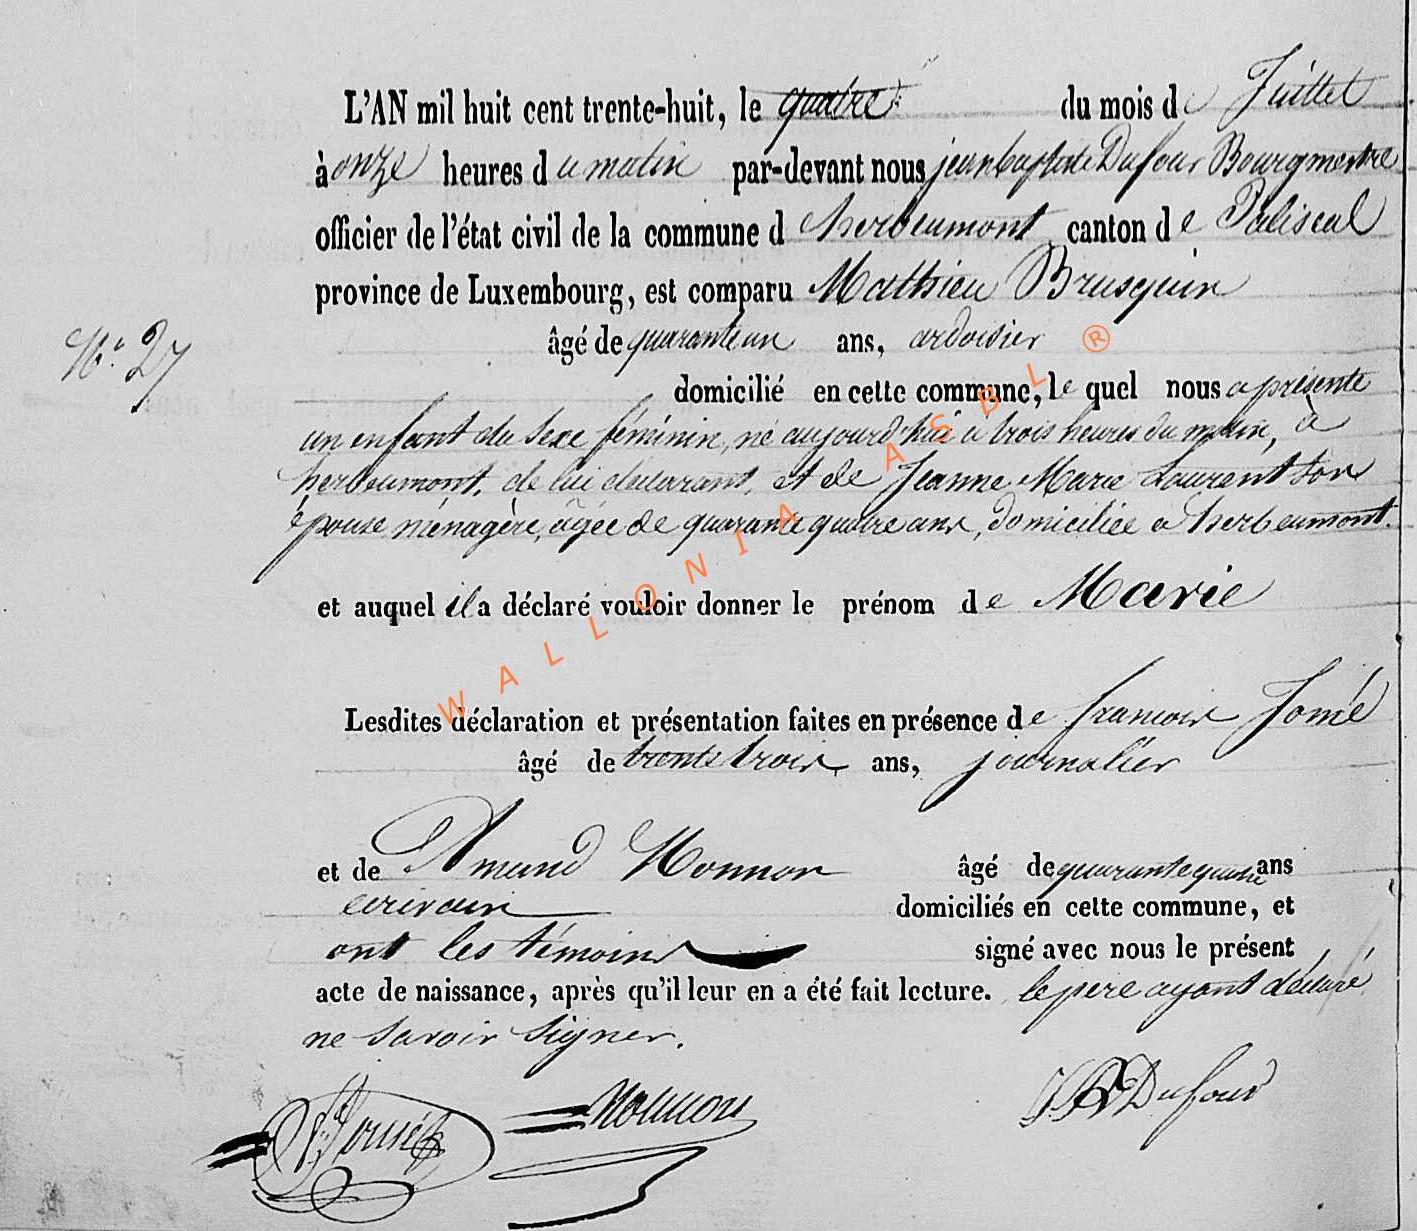 L'AN mil huit cent trente-huit, le quatre du mois de Juillet
à onze heures du matin par-devant nous jean baptiste Dufour Bourgmestre
officier de l'état civil de la commune d'herbeumont canton de Paliseul
province de Luxembourg, est comparu Mathieu Brusquin
N° 27
âgé de quarante un ans, ardoisier
domicilié en cette commune, le quel nous a présenté
un enfant du sexe féminin, né aujourd'hui à trois heures du matin, à
herbeumont, de lui déclarant, et de Jeanne Marie Laurent son
épouse ménagère, âgée de quarante quatre ans, domiciliée à herbeumont.
et auquel il a déclaré vouloir donner le prénom de Marie
Lesdites déclaration et présentation faites en présence de françois Jomé
âgé de trente trois ans, journalier
et de Amand Monnon âgé de quarante quatre ans
écrivain domiciliés en cette commune, et
ont les témoins signé avec nous le présent
acte de naissance, après qu'il leur en a été fait lecture. le père ayant déclaré
ne savoir signer.
Monnon
JB Dufour
WALLONIA ASBL ®